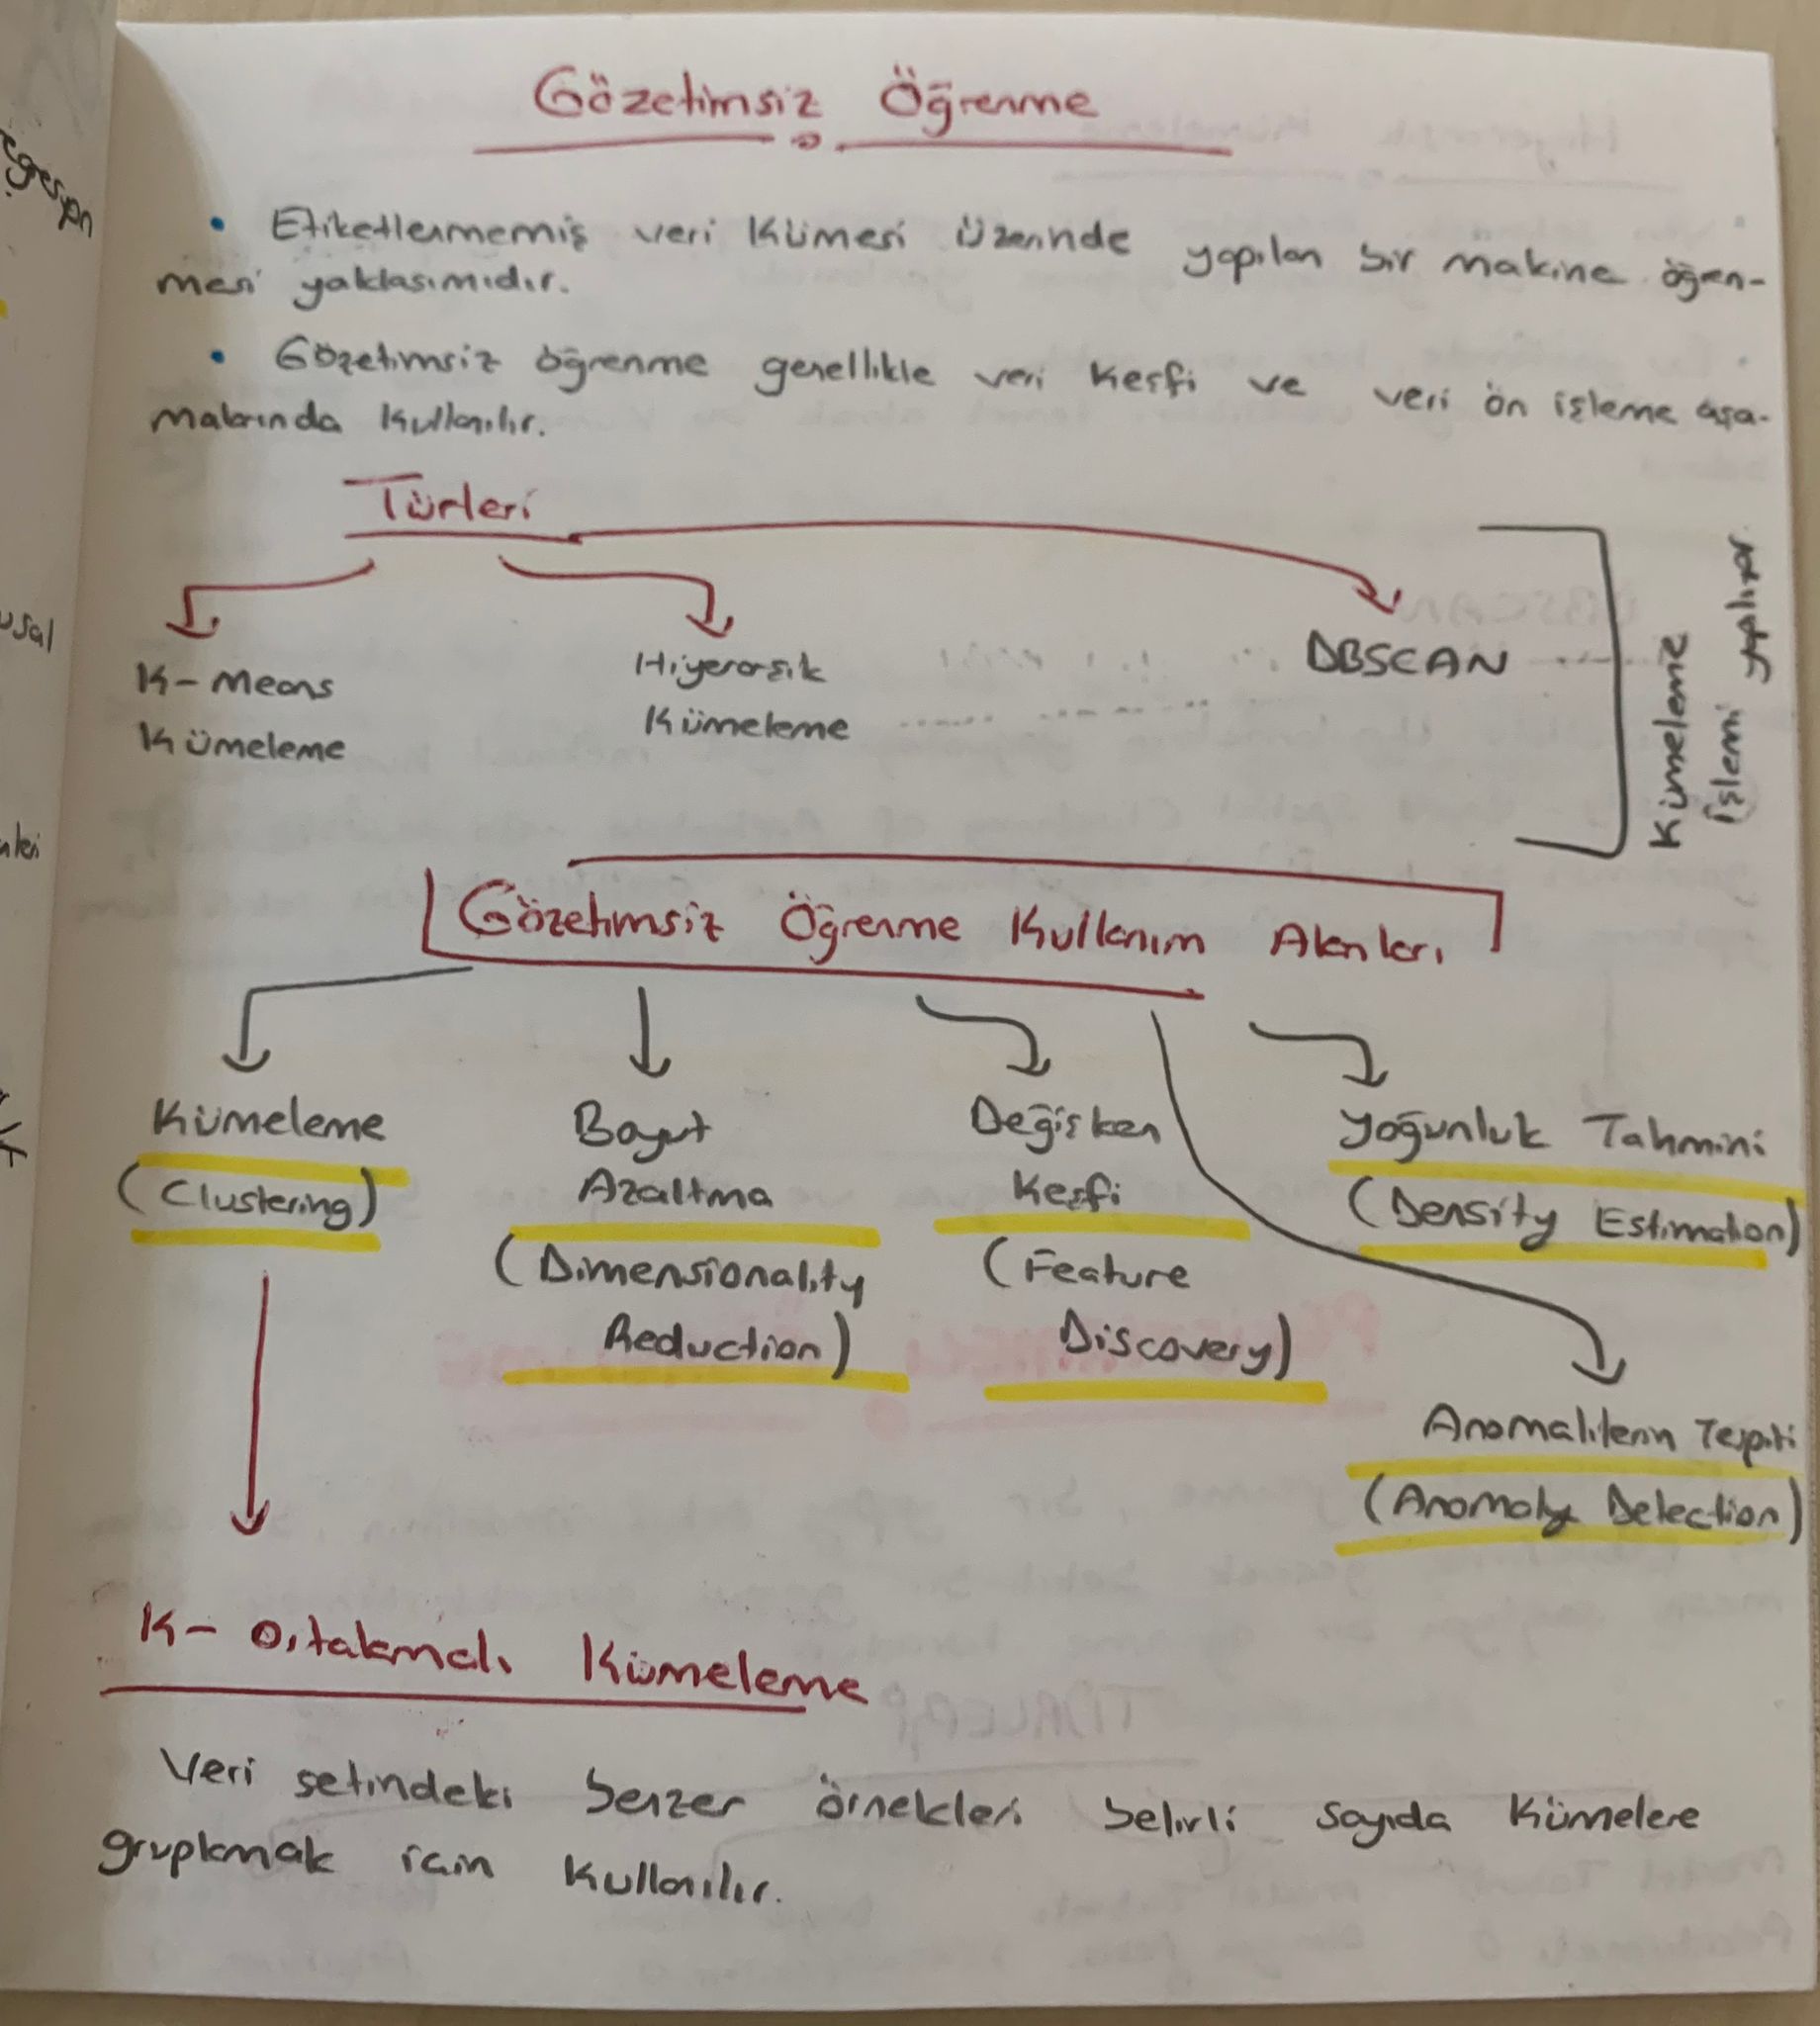 Gözetimsiz Öğrenme
• Etiketlenmemiş veri kümesi üzerinde yapılan bir makine öğren-
mesi yaklaşımıdır.
• Gözetimsiz öğrenme genellikle veri keşfi ve veri ön işleme aşa-
malarında kullanılır.
Türleri
K-Means
Kümeleme
Hiyerarşik
Kümeleme
DBSCAN
Kümeleme
İşlemi yapılıyor
Gözetimsiz Öğrenme Kullanım Alanları
Kümeleme
(Clustering)
Boyut
Azaltma
(Dimensionality
Reduction)
Değişken
Keşfi
(Feature
Discovery)
Yoğunluk Tahmini
(Density Estimation)
Anomalilerin Tespiti
(Anomoly Detection)
K- Ortalamalı Kümeleme
Veri setindeki benzer örnekleri belirli sayıda kümelere
gruplamak için kullanılır.